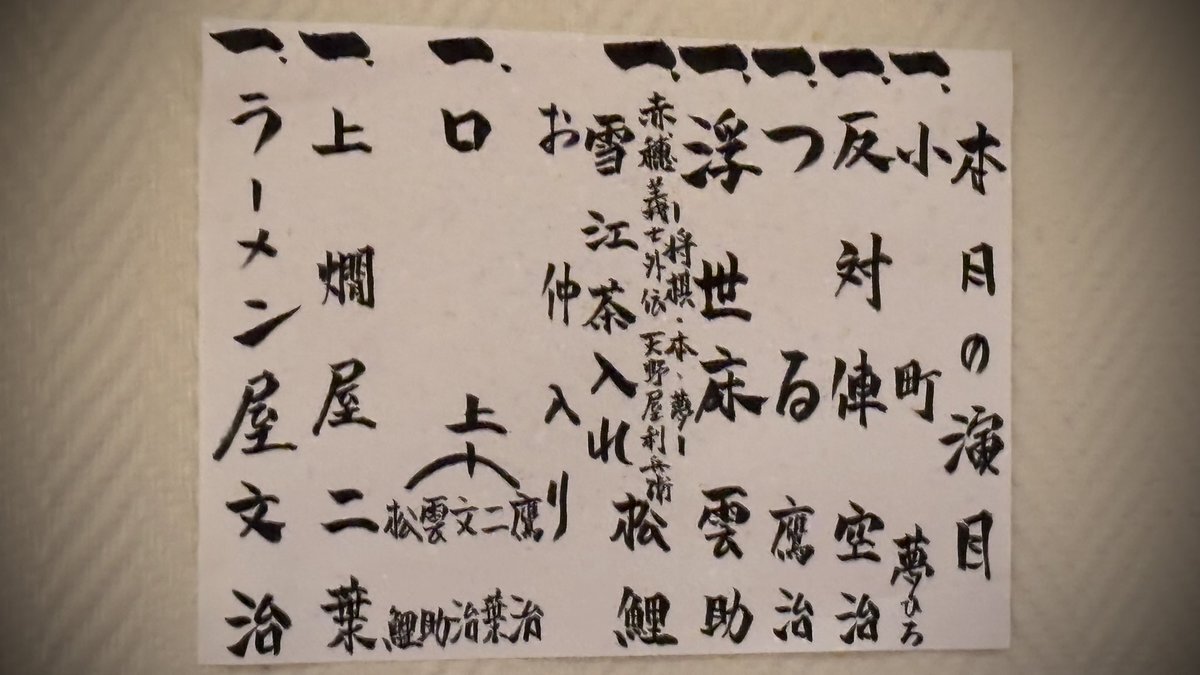 本月の演目
一、小町 夢ひろ
一、反対俥 空治
一、つる 鷹治
一、浮世床 雲助
ー将棋・本・夢ー
一、赤穂義士外伝 天野屋利兵衛
雪江茶入れ 松鯉
お仲入り
一、口上 鷹治 二葉 文治 雲助 松鯉
一、上燗屋 二葉
一、ラーメン屋 文治